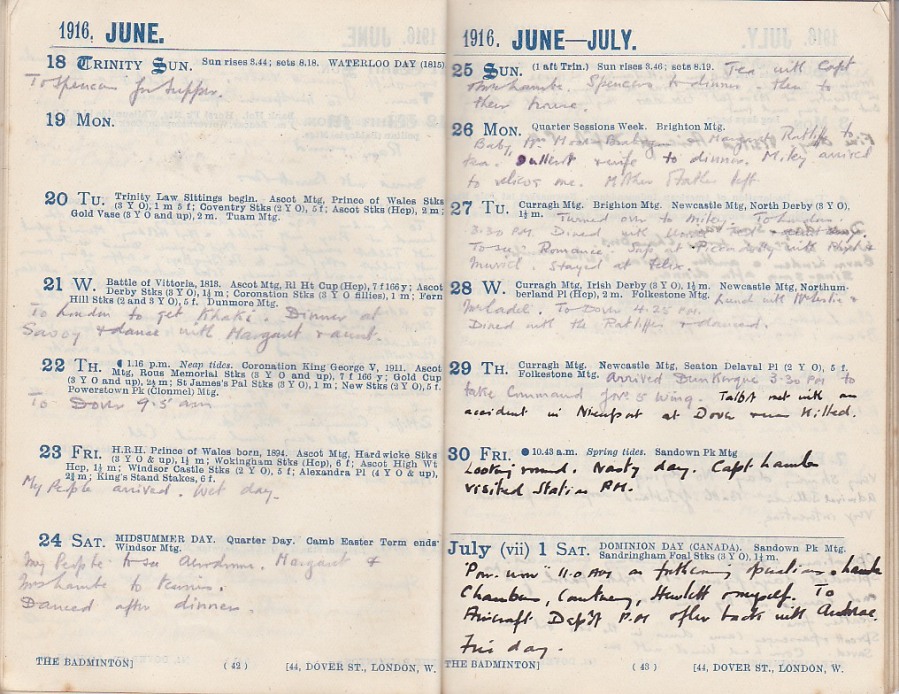 1916. JUNE.
18 TRINITY SUN. Sun rises 3.44; sets 8.18. WATERLOO DAY (1815)
To Spencers for Supper.
19 MON.
20 TU. Trinity Law Sittings begin. Ascot Mtg, Prince of Wales Stks
(3 Y O), 1 m 5 f; Coventry Stks (2 Y O), 5 f; Ascot Stks (Hcp), 2 m;
Gold Vase (3 Y O and up), 2 m. Tuam Mtg.
21 W. Battle of Vittoria, 1813. Ascot Mtg, Rl Ht Cup (Hcp), 7 f 166 y; Ascot
Derby Stks (3 Y O), 1½ m; Coronation Stks (3 Y O fillies), 1 m; Fern
Hill Stks (2 and 3 Y O), 5 f. Dunmore Mtg.
To London to get Khaki. Dinner at
Savoy & dance with Margaret & aunt.
22 TH. 1.16 p.m. Neap tides. Coronation King George V, 1911. Ascot
Mtg, Rous Memorial Stks (3 Y O and up), 7 f 166 y; Gold Cup
(3 Y O and up), 2½ m; St James's Pal Stks (3 Y O), 1 m; New Stks (2 Y O), 5 f.
Powerstown Pk (Clonmel) Mtg.
To Dover 9.5 am
23 FRI. H.R.H. Prince of Wales born, 1894. Ascot Mtg, Hardwicke Stks
(3 Y O and up), 1½ m; Wokingham Stks (Hcp), 6 f; Ascot High Wt
Hcp, 1½ m; Windsor Castle Stks (2 Y O), 5 f; Alexandra Pl (4 Y O & up),
2¾ m; King's Stand Stakes, 6 f.
My People arrived. Wet day.
24 SAT. MIDSUMMER DAY. Quarter Day. Camb Easter Term ends
Windsor Mtg.
My People to see Aerodrome. Margaret &
Mrs Lambe to tennis.
Danced after dinner.
THE BADMINTON] (42) [44, DOVER ST., LONDON, W.
1916. JUNE—JULY.
25 SUN. (1 aft Trin.) Sun rises 3.46; sets 8.19. Tea with Capt
& Mrs Lambe. Spencers to dinner. Then to
their house.
26 MON. Quarter Sessions Week. Brighton Mtg.
Baby, Margaret Ratliffe to
tea. & wife to dinner. Mikey arrived
to relieve me. Mother & Father left.
27 TU. Curragh Mtg. Brighton Mtg. Newcastle Mtg, North Derby (3 Y O),
1½ m. Turned over to Mikey. To London.
3.30 PM. Dined with
To see Romance. Sup at Piccadilly with
Muriel. Stayed at Felix.
28 W. Curragh Mtg, Irish Derby (3 Y O), 1½ m. Newcastle Mtg, Northum-
berland Pl (Hcp), 2 m. Folkestone Mtg. Lunch with &
To Dover 4.25 PM.
Dined with the Ratliffes & danced.
29 TH. Curragh Mtg. Newcastle Mtg, Seaton Delaval Pl (2 Y O), 5 f.
Folkestone Mtg. Arrived Dunkerque 3.30 PM to
take Command of No 5 Wing. Talbot met with an
accident in Nieuport at Dover & was killed.
30 FRI. 10.43 a.m. Spring tides. Sandown Pk Mtg
Looking round. Nasty day. Capt Lambe
visited Station PM.
July (vii) 1 SAT. DOMINION DAY (CANADA). Sandown Pk Mtg.
Sandringham Foal Stks (3 Y O), 1¼ m.
"Pow wow" 11.0 AM on operations. Lambe
Chambers, Courtney, Huskisson & myself. To
Aircraft Depôt P.M. after back with
Fine day.
THE BADMINTON] (43) [44, DOVER ST., LONDON, W.